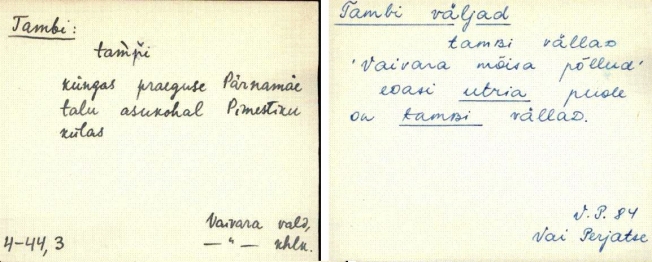 Tambi:
tam̀p̆i
küngas praeguse Pärnamäe
talu asukohal Pimestiku
külas
Vaivara vald,
— " — khlk.
4-44, 3
Tambi väljad
tamʙi vällaᴅ
'Vaivara mõisa põllud'
eᴅasi utria puole
on tamʙi vällaᴅ.
V. P. 84
Vai Perjatse